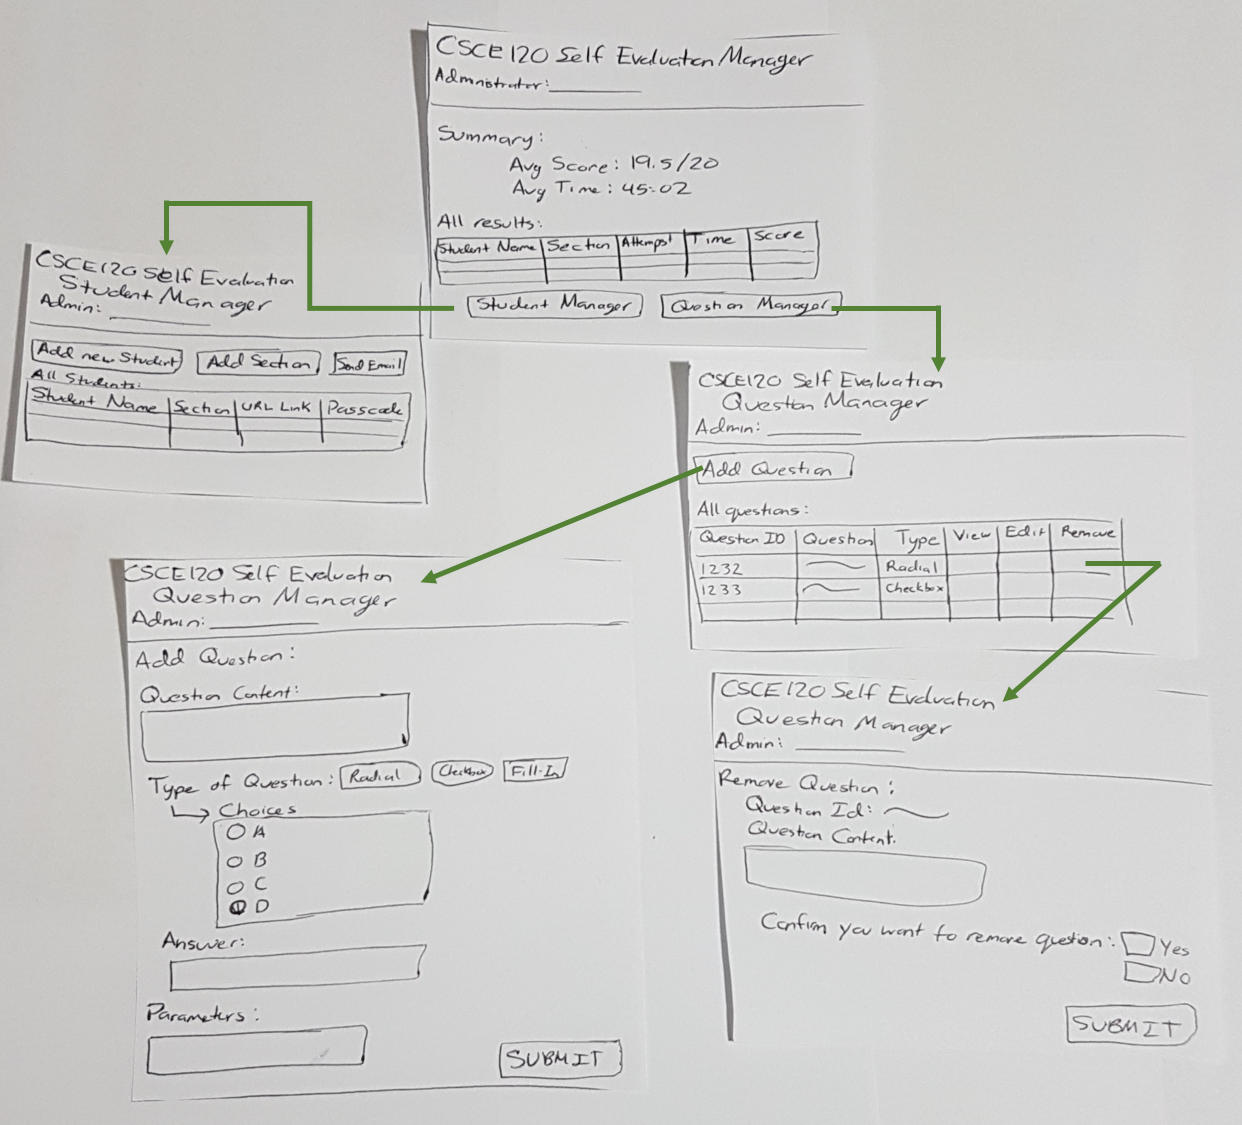 CSCE 120 Self Evaluation Manager
Administrator:
Summary:
Avg Score: 19.5/20
Avg Time: 45:02
All results:
Student Name Section Attempt Time Score
Student Manager Question Manager
CSCE120 Self Evaluation
Student Manager
Admin:
Add new Student Add Section Send Email
All Students:
Student Name Section URL Link Passcode
CSCE120 Self Evaluation
Question Manager
Admin:
Add Question
All questions:
Question ID Question Type View Edit Remove
1232 Radial
1233 Checkbox
CSCE120 Self Evaluation
Question Manager
Admin:
Add Question:
Question Content:
Type of Question: Radial Checkbox Fill-In
Choices
A
B
C
D
Answer:
Parameters:
SUBMIT
CSCE 120 Self Evaluation
Question Manager
Admin:
Remove Question:
Question Id:
Question Content:
Confirm you want to remove question: Yes
No
SUBMIT